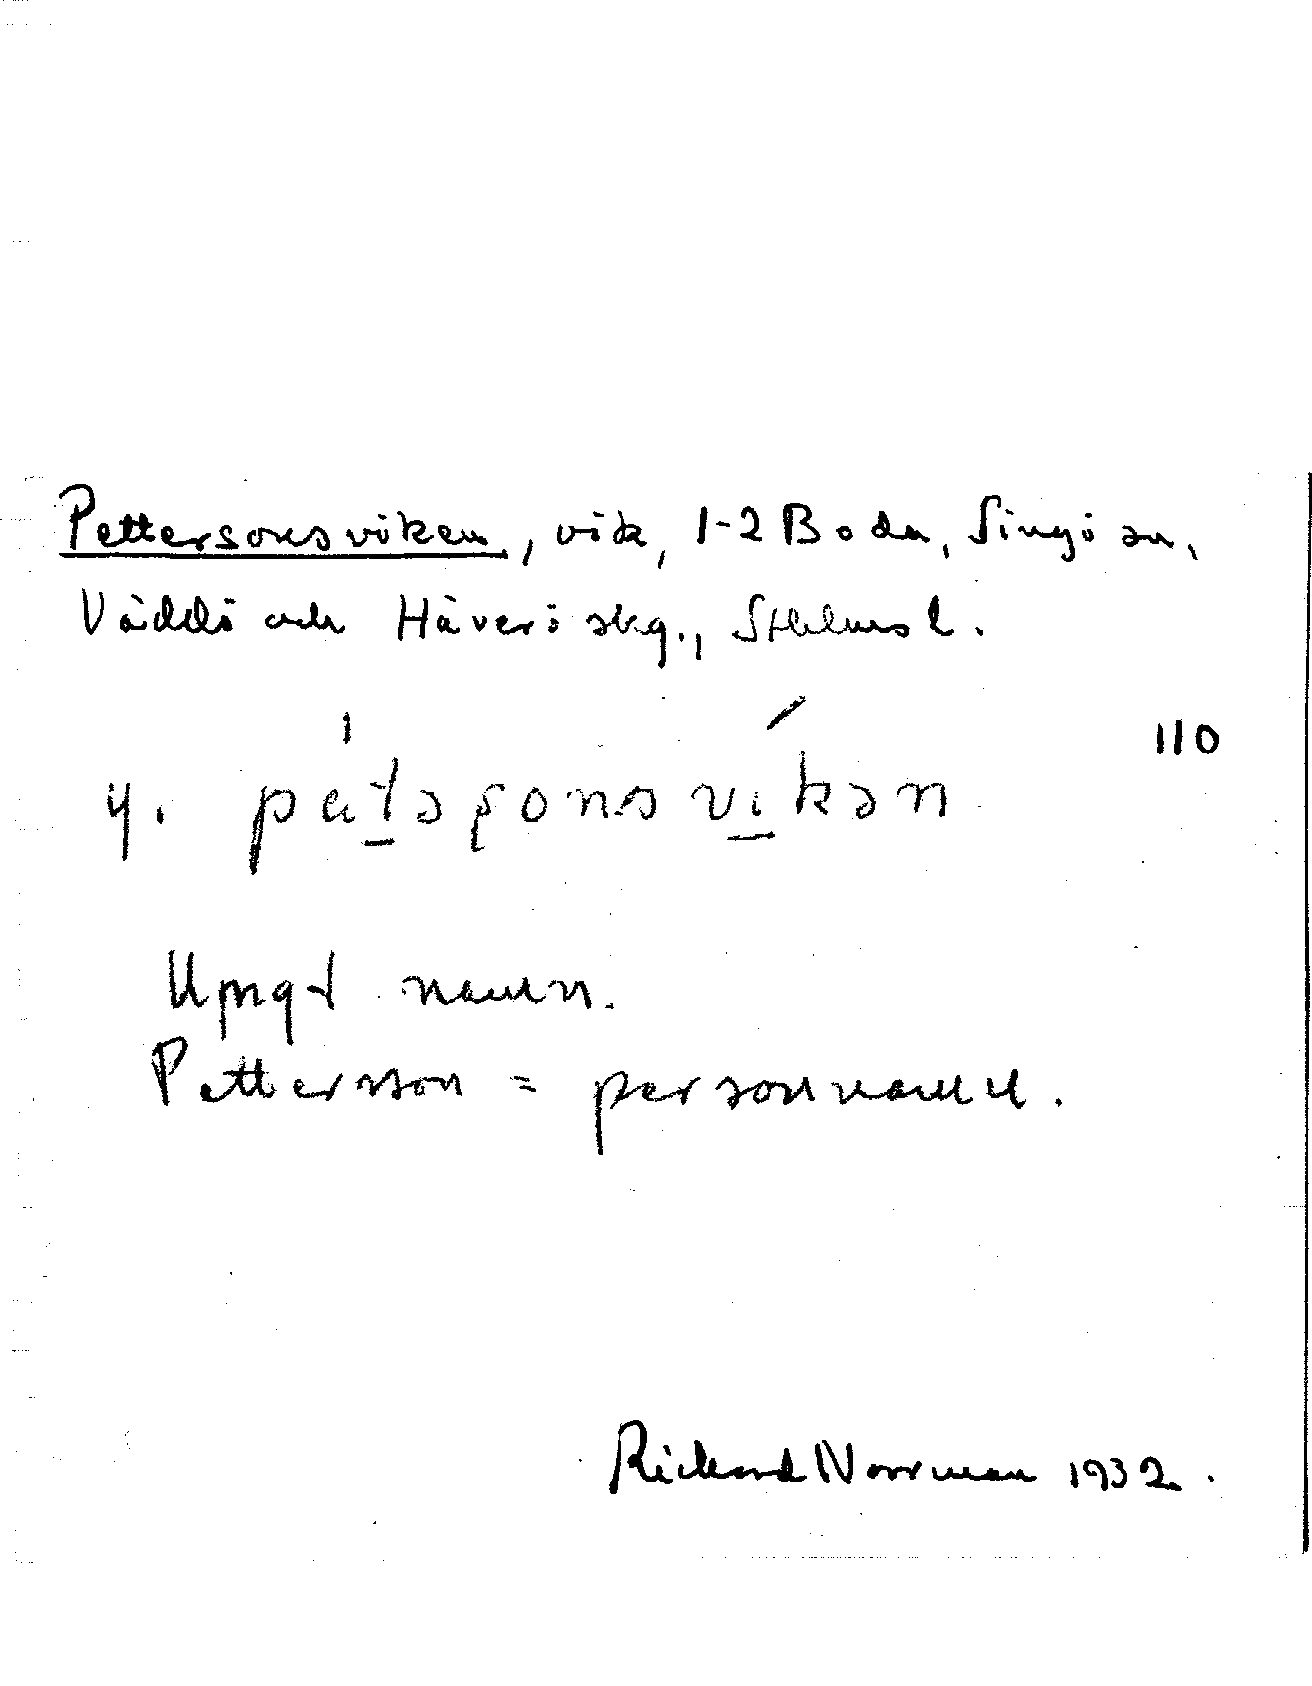 Pettersonsviken, vik, 1-2 Boda, Singö sn,
Väddö och Häverö skg., Sthlms l.
110
y. pätəʂonsvikən
Ungt namn.
Pettersson = personnamn.
Rickard Norrman 1932.